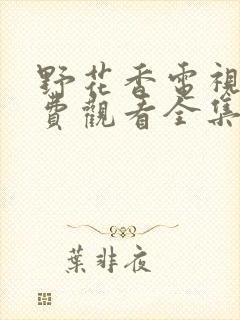 野花香電視
費觀看全集
葉非夜